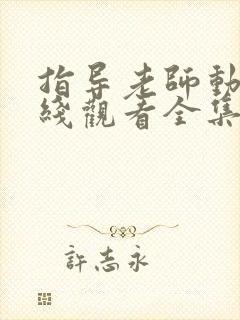 指导老師動
綫觀看全集
許志永